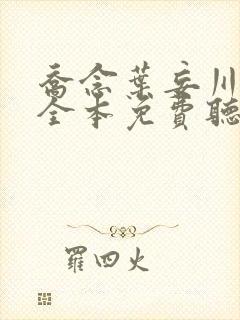 喬念葉妄川
全本免費聽
羅四火